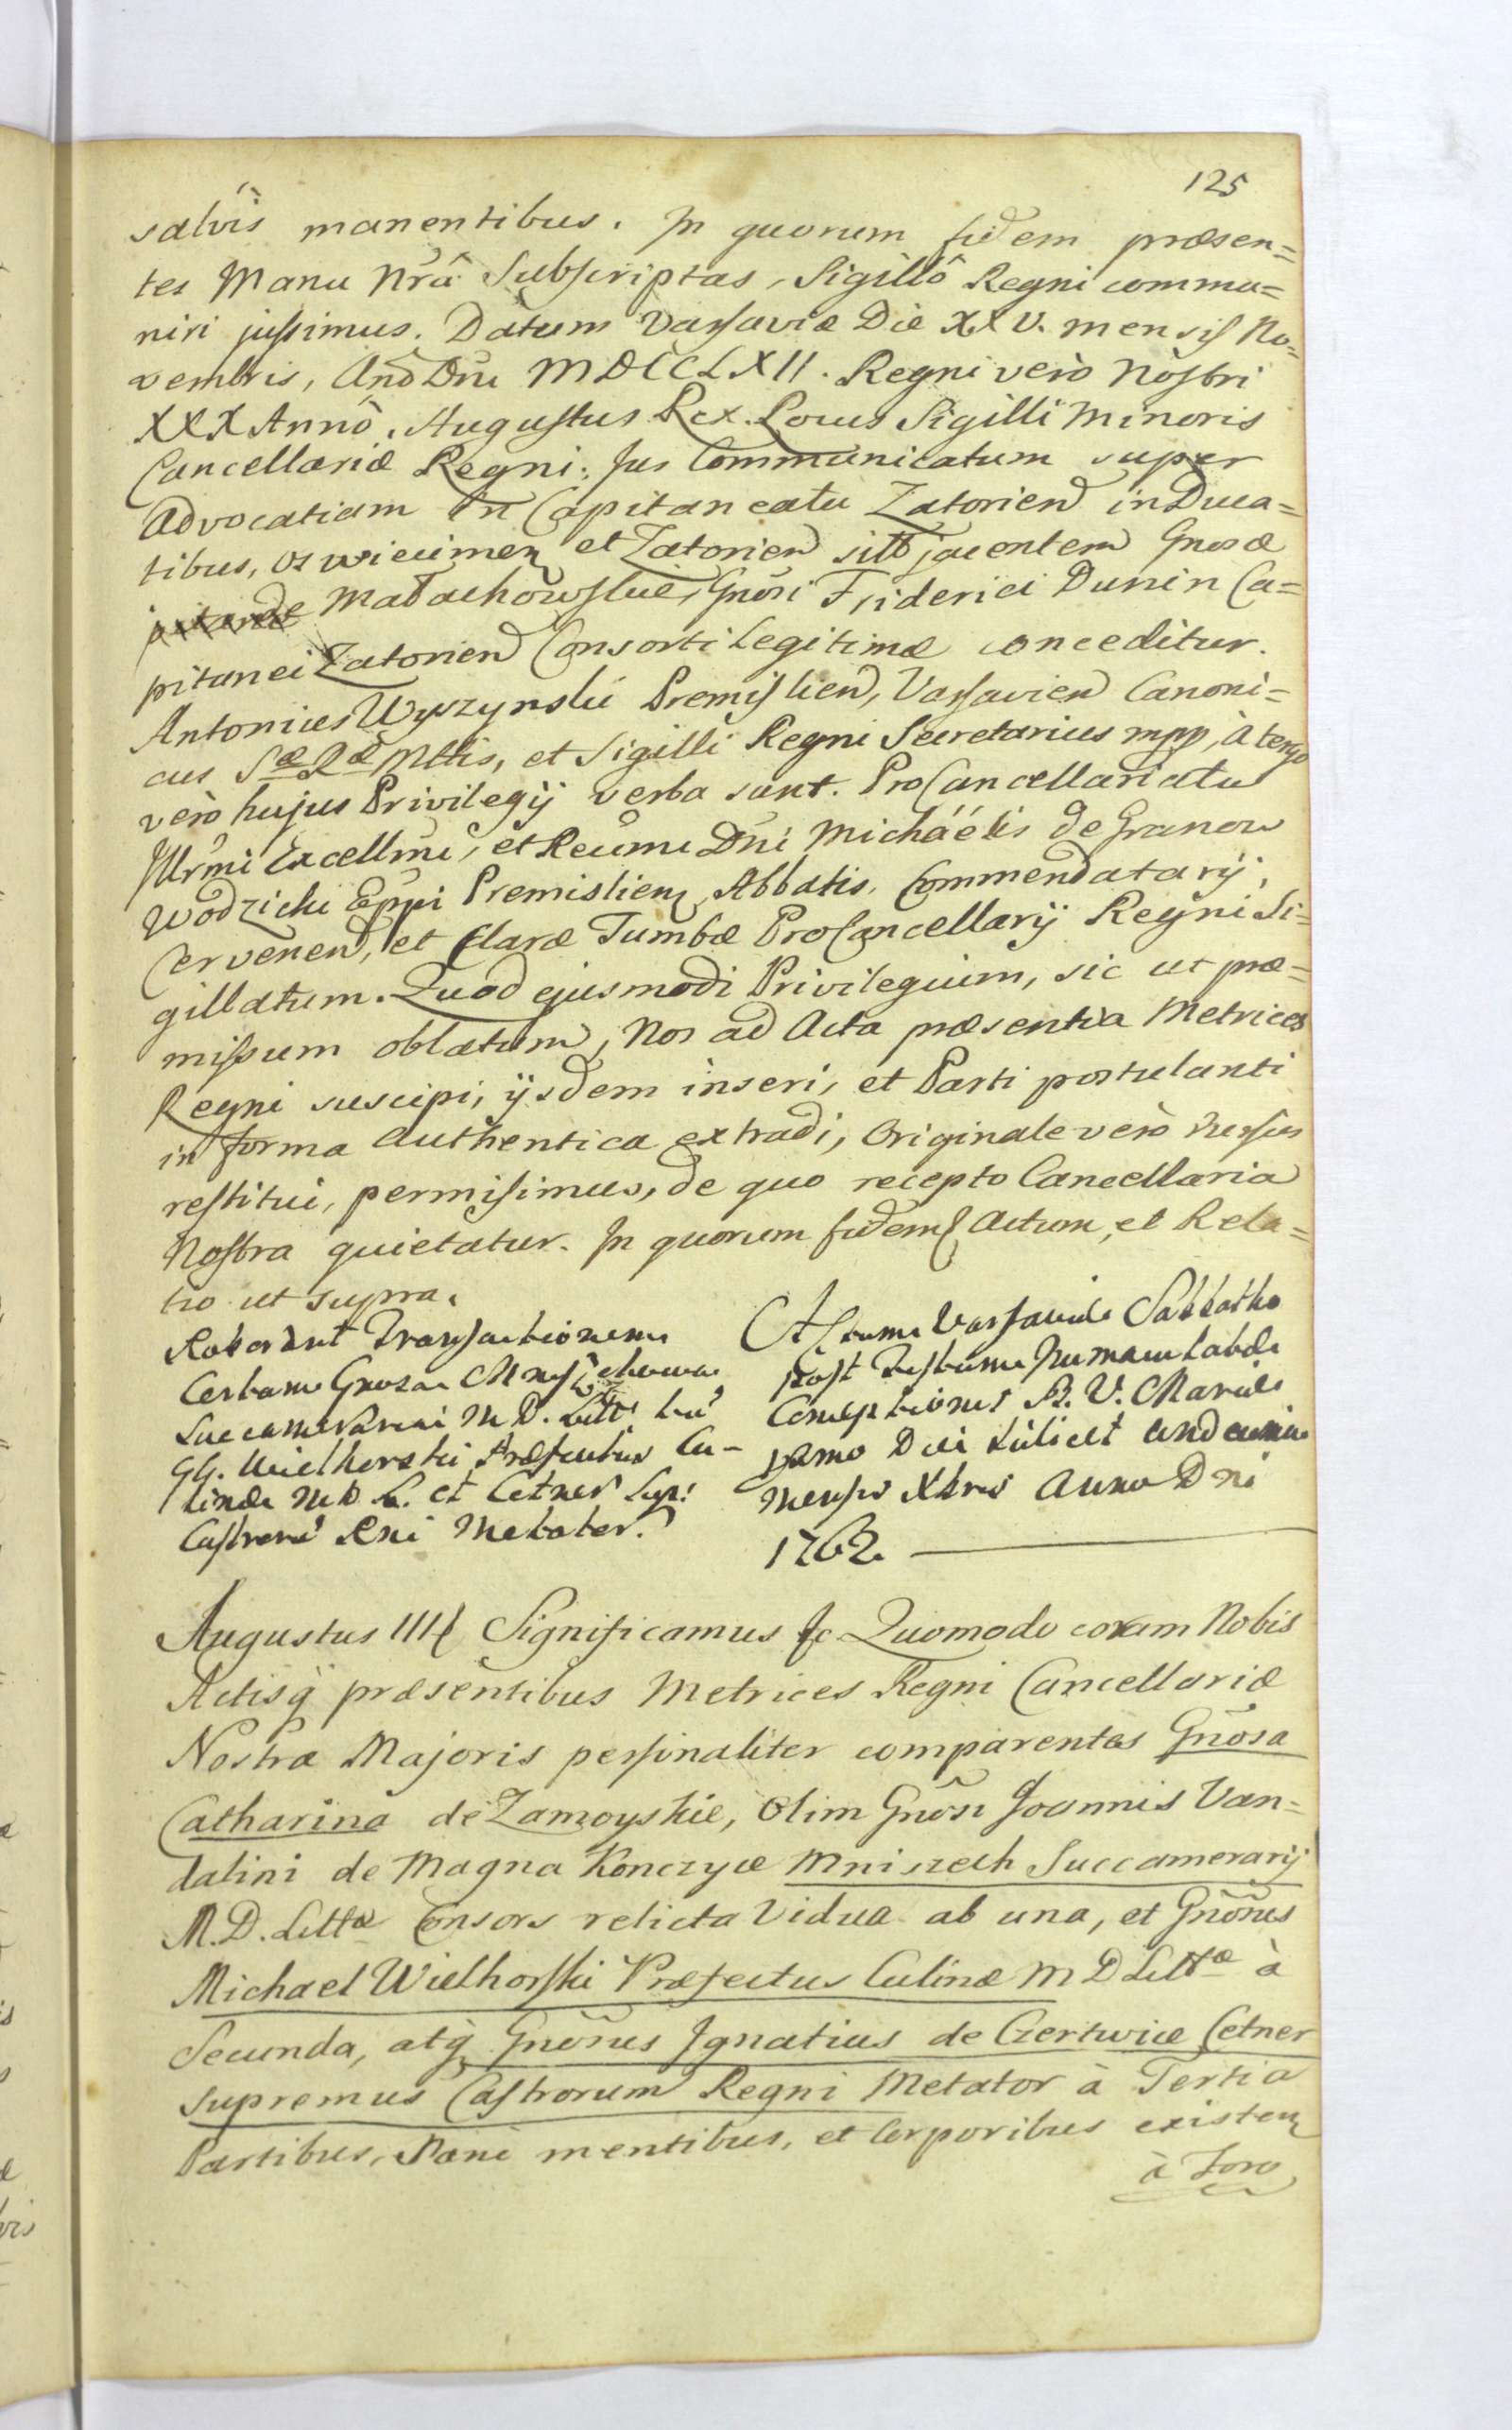 125
salvis manentibus. In quorum fidem præsen=
tes Manu Nrâ Subscriptas, Sigillô Regni commu=
niri jussimus. Datum Varsaviæ Die XXV. mensis No=
vembris, Anô Dni MDCCLXII. Regni verò Nostri
XXX Annô. Augustus Rex. Locus Sigilli Minoris
Cancellariæ Regni. Jus Communicatum super
Advocatiam in Capitaneatu Zatorien in Duca=
tibus, Oswiecimen et Zatorien sitt jacentem Gnosæ
de Małachowskie, Gnosi Friderici Dunin Ca=
pitanei Zatorien Consorti Legitimæ conceditur.
Antonius Wyszynski Premislien, Varsavien Canoni=
cus Sæ Ræ Mttis, et Sigilli Regni Secretarius mpp, à tergo
verò hujus Privilegij verba sunt. ProCancellariatu
Illrmi Excellmi, et Reumi Dni Michäélis de Granow
Wodzicki Eppi Premislien, Abbatis Commendatarij,
Cervenen, et Claræ Tumbæ ProCancellarij Regni Si=
gillatum. Quod ejusmodi Privilegium, sic ut præ=
missum oblatum, Nos ad Acta præsentia Metrices
Regni suscipi, ijsdem inseri, et Parti postulanti
in forma authentica extradi, Originale verò rursus
restitui, permisimus, de quo recepto Cancellaria
Nostra quietatur. In quorum fidem Actum, et Rela=
tio ut supra.
Roborant Transactionem
Certam Gnosa Mniszchowa
Succamerarii M. D. Litt
GG. Wielhorski Præfectus Cu-
linæ M. D. L. et Cetner Sup:
Castrorũ Rni Metator.
Actum Varsaviæ Sabbatho
post Festum Immaculatæ
Conceptionis B. V. Mariæ
pxmo Die scilicet undecima
Mensis Xbris Anno Dni
1762
Augustus III Significamus Quomodo coram Nobis
Actisq præsentibus Metrices Regni Cancellariæ
Nostræ Majoris personaliter comparentes Gnosa
Catharina de Zamoyskie, Olim Gnosi Joannis Van=
dalini de Magna Konczyce Mniszech Succamerarij
M. D. Littæ Consors relicta Vidua ab una, et Gnosus
Michael Wielhorski Præfectus Culinæ M D Littæ à
Secunda, atq Gnosus Ignatius de Czertwice Cetner
Supremus Castrorum Regni Metator à Tertia
Partibus, Sani mentibus, et Corporibus existen
à Foro